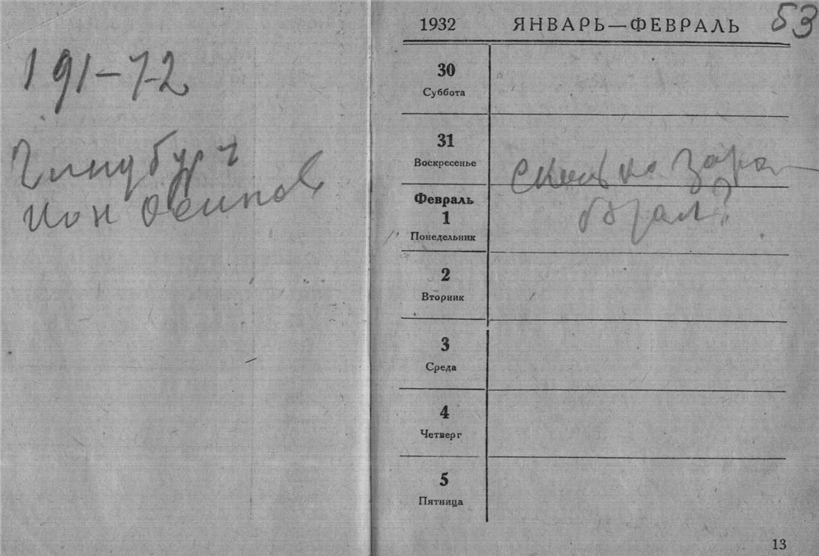 191-72
Гинзбург
Ион Осипов
53
1932 ЯНВАРЬ—ФЕВРАЛЬ
30
Суббота
31
Воскресенье
Февраль
1
Понедельник
Сколько зара-
ботал?
2
Вторник
3
Среда
4
Четверг
5
Пятница
13